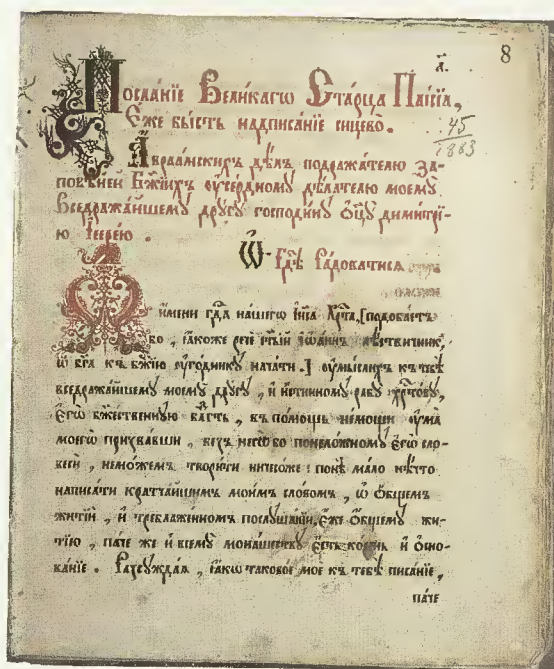 а҃. 8
Посла́нїе Вели́кагѡ Ста́рца Паи́сїа,
Є҆́же бы́сть надписа́нїе сицево̀.
45
1883
А҆враа́мскихъ дѣ́лъ подража́телю за-
повѣ́дей Бж҃їихъ ᲂу҆се́рдному дѣ́лателю моемꙋ̀
Вседража́йшемꙋ дрꙋ́гꙋ господи́нꙋ ѻ҆ц҃ꙋ̀ дими́трї-
ю І҆ере́ю.
Ѡ҆ Гд҇ѣ Ра́доватися
и҆́мени гд҇а на́шегѡ і҆и҃са хр҇та̀, подоба́етъ
бо, ꙗ҆́коже речѐ ст҃ы́й і҆ѡа́ннъ лѣ́ствичникъ,
ѿ бг҃а къ бж҃їю ᲂу҆го́дникꙋ нача́ти. И҆ ᲂу҆мы́слихъ къ тебѣ̀
вседража́йшемꙋ моемꙋ̀ дрꙋ́гꙋ, и҆ и҆́стинномꙋ рабꙋ̀ хр҇то́вꙋ,
є҆гѡ̀ бж҃е́ственнꙋю бл҃гть, въ по́мощь не́мощи ᲂу҆ма̀
моегѡ̀ призва́вши, безъ негѡ́ бо по нело́жномꙋ є҆гѡ̀ сло-
весѝ, не мо́жемъ твори́ти ничесо́же: понѐ ма́ло нѣ́что
написа́ти кратча́йшимъ мои́мъ сло́вомъ, ѡ҆ ѻ҆́бщемъ
житїѝ, и҆ требл҃же́нномъ послꙋша́нїи, є҆́же ѻ҆́бщемꙋ жи-
тїю̀, па́че же и҆ всемꙋ̀ мона́шествꙋ є҆́сть ко́рень и҆ ѻ҆сно-
ва́нїе. Разсꙋжда́ѧ, ꙗ҆́кѡ таково́е моѐ къ тебѣ̀ писа́нїе,
па́че